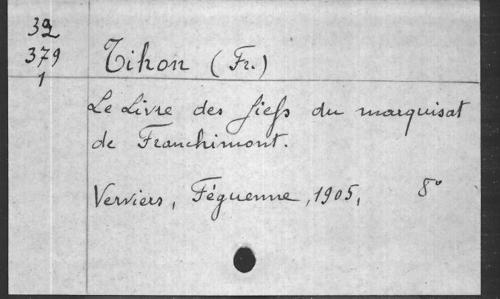 32
379
1
Tihon (Fr.)
Le Livre des fiefs du marquisat
de Franchimont.
Verviers, Féguenne, 1905, 8°